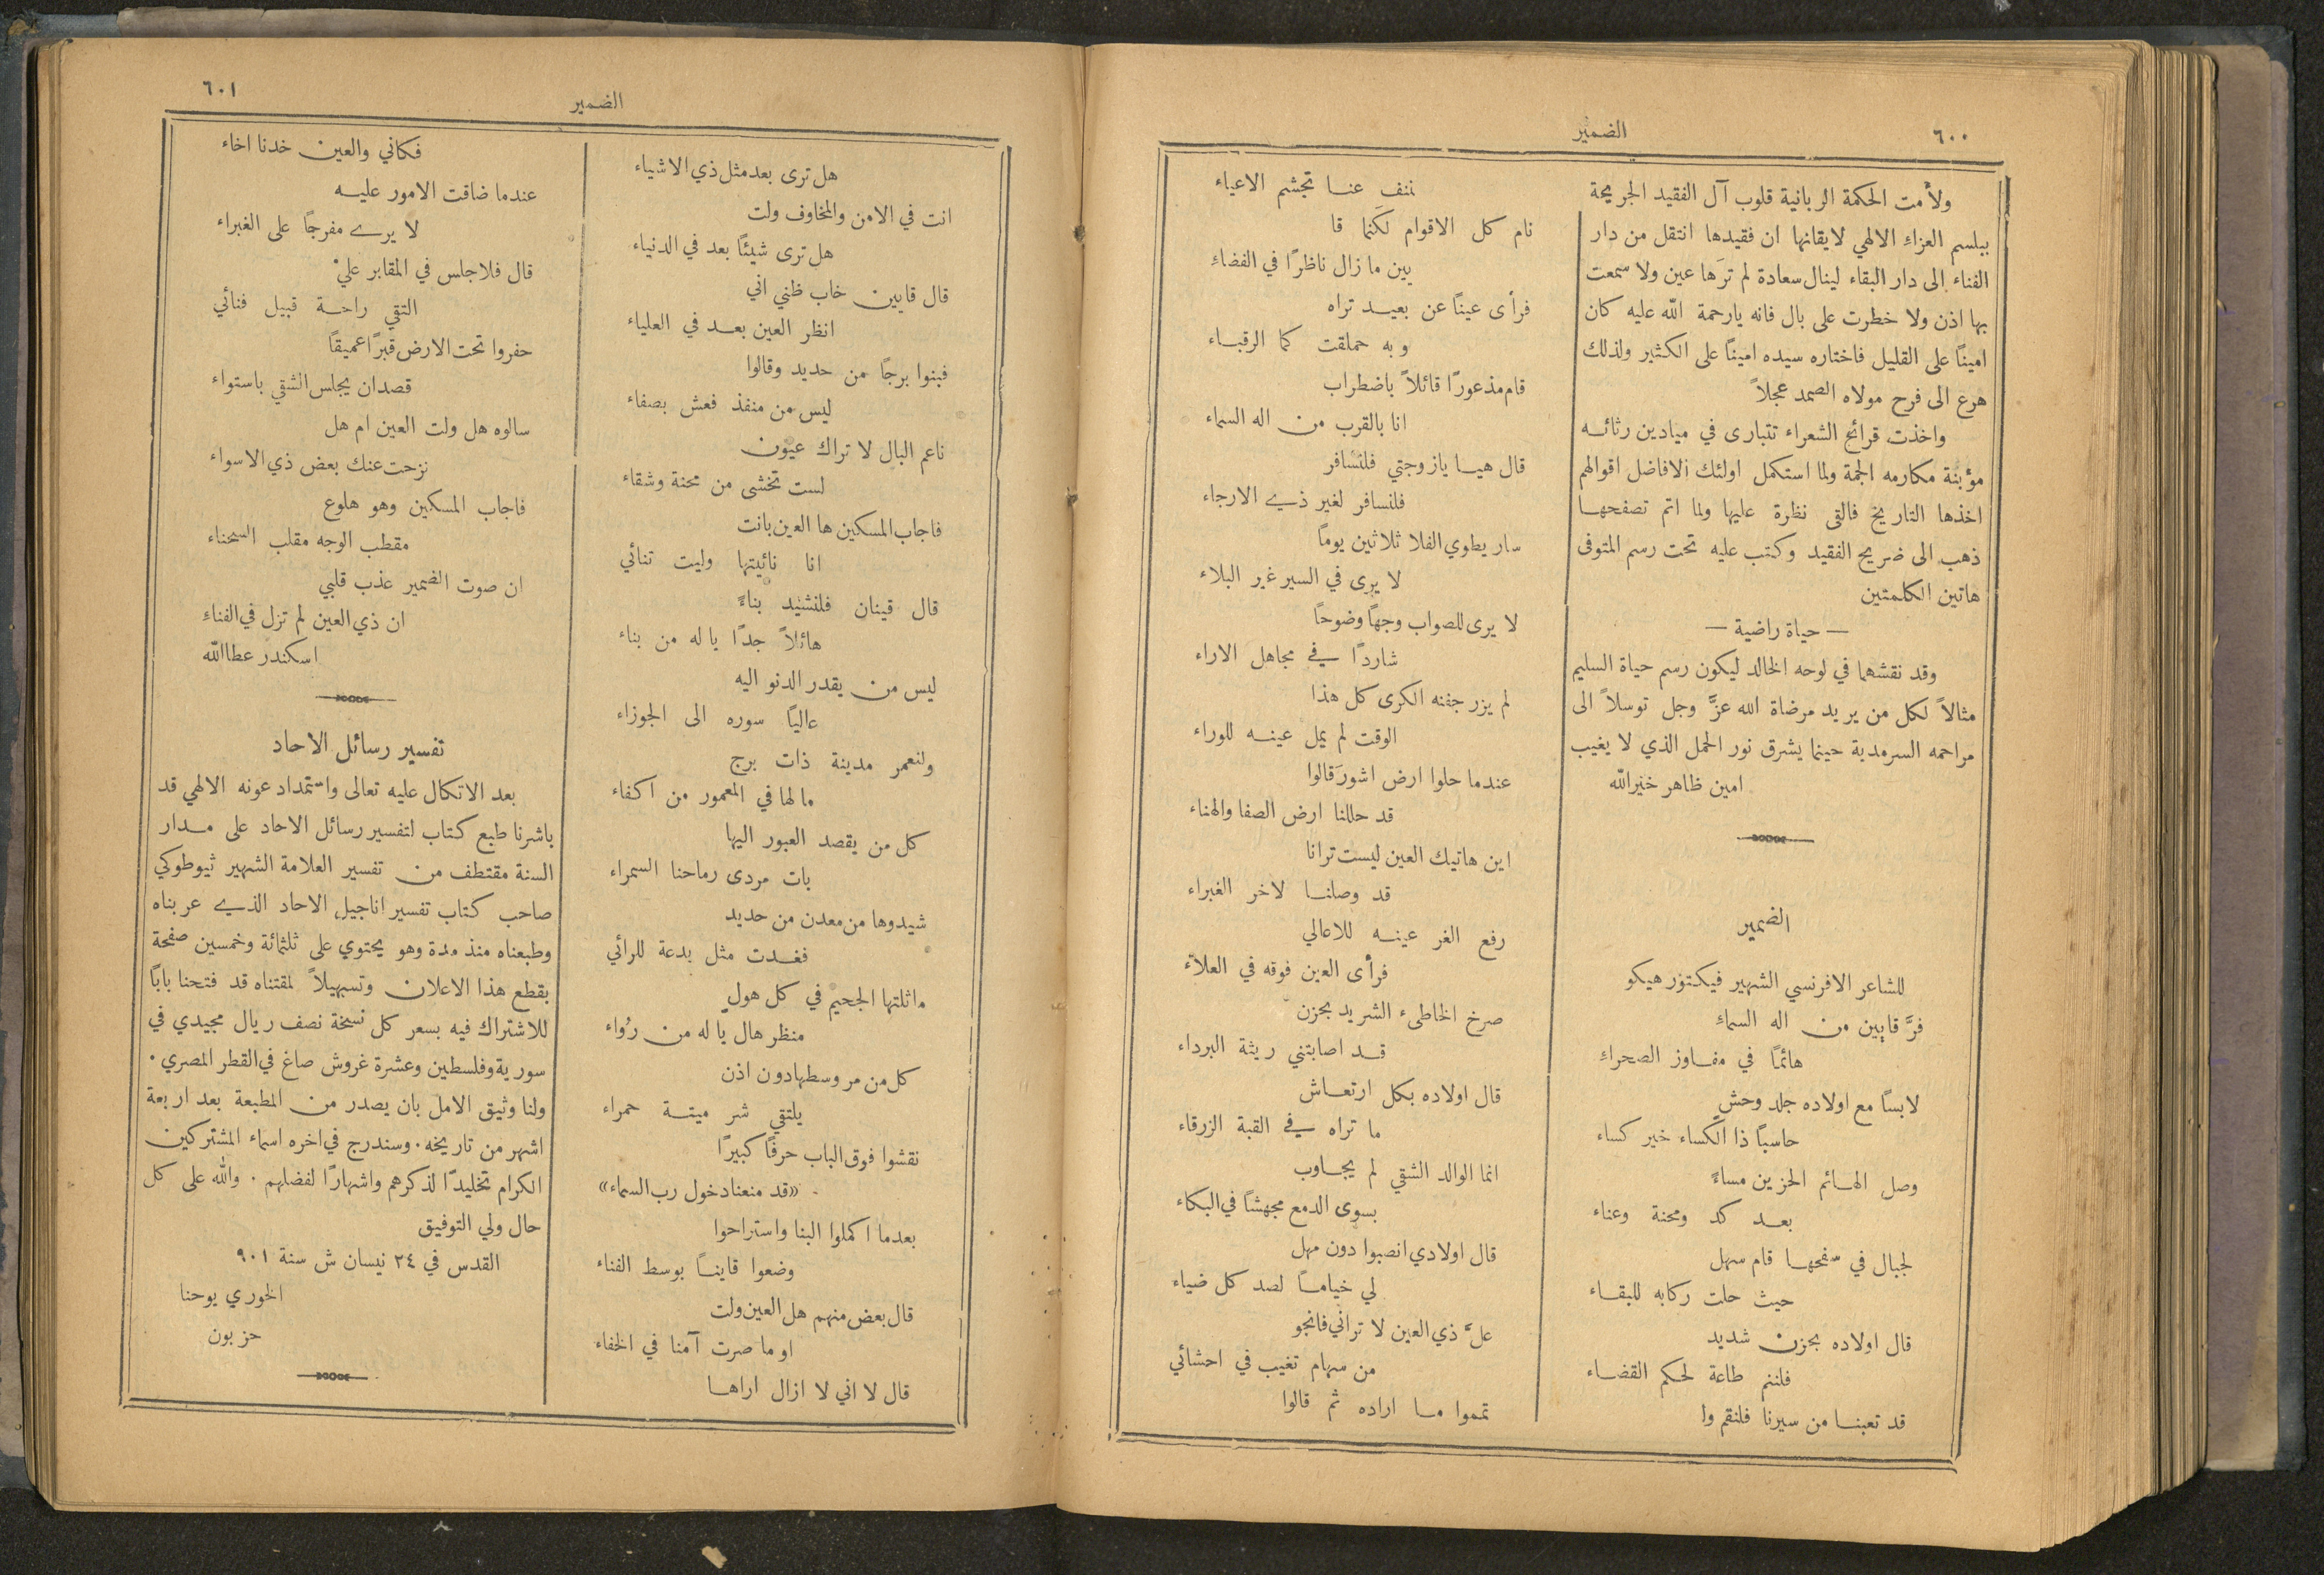 ٦٠٠
الضمير
ولأمت الحكمة الربانية قلوب آل الفقيد الجريحة
ببلسم العزاء الالهي لايقانها ان فقيدها انتقل من دار
الفناء الى دار البقاء لينال سعادة لم ترَها عين ولا سمعت
بها اذن ولا خطرت على بال فانه يارحمة الله عليه كان
امينًا على القليل فاختاره سيده امينًا على الكثير ولذلك
هرع الى فرح مولاه الصمد عجلاً
واخذت قرائح الشعراء تتبارى في ميادين رثائه
مؤبنة مكارمه الجمة ولما استكمل اولئك الافاضل اقوالهم
اخذها التاريخ فالقى نظرة عليها ولما اتم تصفحها
ذهب الى ضريح الفقيد وكتب عليه تحت رسم المتوفى
هاتين الكلمتين
— حياة راضية —
وقد نقشهما في لوحه الخالد ليكون رسم حياة السليم
مثالاً لكل من يريد مرضاة الله عزَّ وجل توسلاً الى
مراحمه السرمدية حينما يشرق نور الحمل الذي لا يغيب
امين ظاهر خيرالله
الضمير
للشاعر الافرنسي الشهير فيكتور هيكو
فرَّ قايين من اله السماءِ
هائمًا في مفاوز الصحراءِ
لابسًا مع اولاده جلد وحشٍ
حاسبًا ذا الكساء خير كساء
وصل الهائم الحزين مساءً
بعد كد ومحنة وعناء
لجبال في سفحها قام سهل
حيث حلت ركابه للبقاء
قال اولاده بحزن شديد
فلننم طاعة لحكم القضاء
قد تعبنا من سيرنا فلنقم وا
ننفِ عنا تجشم الاعياء
نام كل الاقوام لكنما قا
يين ما زال ناظرًا في الفضاءِ
فرأى عينًا عن بعيد تراه
وبه حملقت كما الرقباء
قام مذعورًا قائلاً باضطراب
انا بالقرب من اله السماء
قال هيا يازوجتي فلنسافر
فلنسافر لغير ذي الارجاء
سار يطوي الفلا ثلاثين يومًا
لا يرى في السير غير البلاء
لا يرى للصواب وجهًا وضوحًا
شاردًا في مجاهل الاراء
لم يزر جفنه الكرى كل هذا
الوقت لم يمل عينه للوراء
عندما حلوا ارض اشورَ قالوا
قد حللنا ارض الصفا والهناء
اين هاتيك العين ليست ترانا
قد وصلنا لاخر الغبراء
رفع الغر عينه للاعالي
فرأى العين فوقه في العلاء
صرخ الخاطىء الشريد بحزن
قد اصابتني ريثة البرداء
قال اولاده بكل ارتعاش
ما تراه في القبة الزرقاء
انما الوالد الشقي لم يجاوب
بسوى الدمع مجهشًا في البكاء
قال اولادي انصبوا دون مهل
لي خيامًا لصد كل ضياء
علَّ ذي العين لا تراني فانجو
من سهام تغيب في احشائي
تمموا ما اراده ثم قالوا
الضمير
٦٠١
هل ترى بعد مثل ذي الاشياء
انت في الامن والمخاوف ولت
هل ترى شيئًا بعد في الدنياء
قال قايين خاب ظني اني
انظر العين بعد في العلياء
فبنوا برجًا من حديد وقالوا
ليس من منفذ فعش بصفاء
ناعم البال لا تراك عيون
لست تخشى من محنة وشقاء
فاجاب المسكين ها العين بانت
انا نائيتها وليت تنائي
قال قينان فلنشيد بناءً
هائلاً جدًا يا له من بناء
ليس من يقدر الدنو اليه
عاليًا سوره الى الجوزاء
ولنعمر مدينة ذات برج
ما لها في المعمور من اكفاء
كل من يقصد العبور اليها
بات مردى رماحنا السمراء
شيدوها من معدن من حديد
فغدت مثل بدعة للرائي
ماثلتها الجحيم في كل هولٍ
منظر هال يا له من رُواء
كل من مر وسطها دون اذن
يلتقي شر ميتة حمراء
نقشوا فوق الباب حرفًا كبيرًا
«قد منعنا دخول رب السماء»
بعدما اكملوا البنا واستراحوا
وضعوا قاينًا بوسط الفناء
قال بعض منهم هل العين ولت
او ما صرت آمنا في الخفاء
قال لا اني لا ازال اراها
فكاني والعين خدنا اخاء
عندما ضاقت الامور عليه
لا يرى مفرجًا على الغبراء
قال فلاجلس في المقابر علي
التقي راحة قبيل فنائي
حفروا تحت الارض قبرًا عميقًا
قصدان يجلس الشقي باستواء
سالوه هل ولت العين ام هل
نزحت عنك بعض ذي الاسواء
فاجاب المسكين وهو هلوع
مقطب الوجه مقلب السحناء
ان صوت الضمير عذب قلبي
ان ذي العين لم تزل في الفناءِ
اسكندر عطاالله
تفسير رسائل الاحاد
بعد الاتكال عليه تعالى واستمداد عونه الالهي قد
باشرنا طبع كتاب لتفسير رسائل الاحاد على مدار
السنة مقتطف من تفسير العلامة الشهير ثيوطوكي
صاحب كتاب تفسير اناجيل الاحاد الذي عربناه
وطبعناه منذ مدة وهو يحتوي على ثلثمائة وخمسين صفحة
بقطع هذا الاعلان وتسهيلاً لمقتناه قد فتحنا بابًا
للاشتراك فيه بسعر كل نسخة نصف ريال مجيدي في
سورية وفلسطين وعشرة غروش صاغ في القطر المصري٠
ولنا وثيق الامل بان يصدر من المطبعة بعد اربعة
اشهر من تاريخه٠ وسندرج في اخره اسماء المشتركين
الكرام تخليدًا لذكرهم واشهارًا لفضلهم ٠ والله على كل
حال ولي التوفيق
القدس في ٢٤ نيسان ش سنة ٩٠١
الخوري يوحنا
حزبون